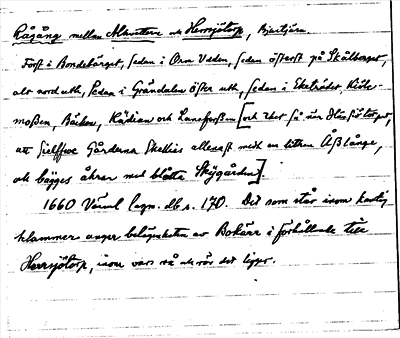 Rågång mellan Munstere och Herrsjötorp, Bjurtjärn.
Först i Bondebärget, sedan i Orm Uden, sedan öfverst på Skålberget,
alt nord uth, sedan i Grändalen öfter uth, sedan i Eketrädet, Kiöl-
moßen, Bäcken, Kiädian och Lanforßen [och
att sielffwe Gårderna Skellies allenast med en lithen Åß långe,
och bägges åkrar med blotte Skygården].
1660 Värml. lagm. db s. 170. Det som står inom
klammer anger belägenheten av Bokärr i förhållande till
Herrsjötorp, inom vars rå och rör det ligger.